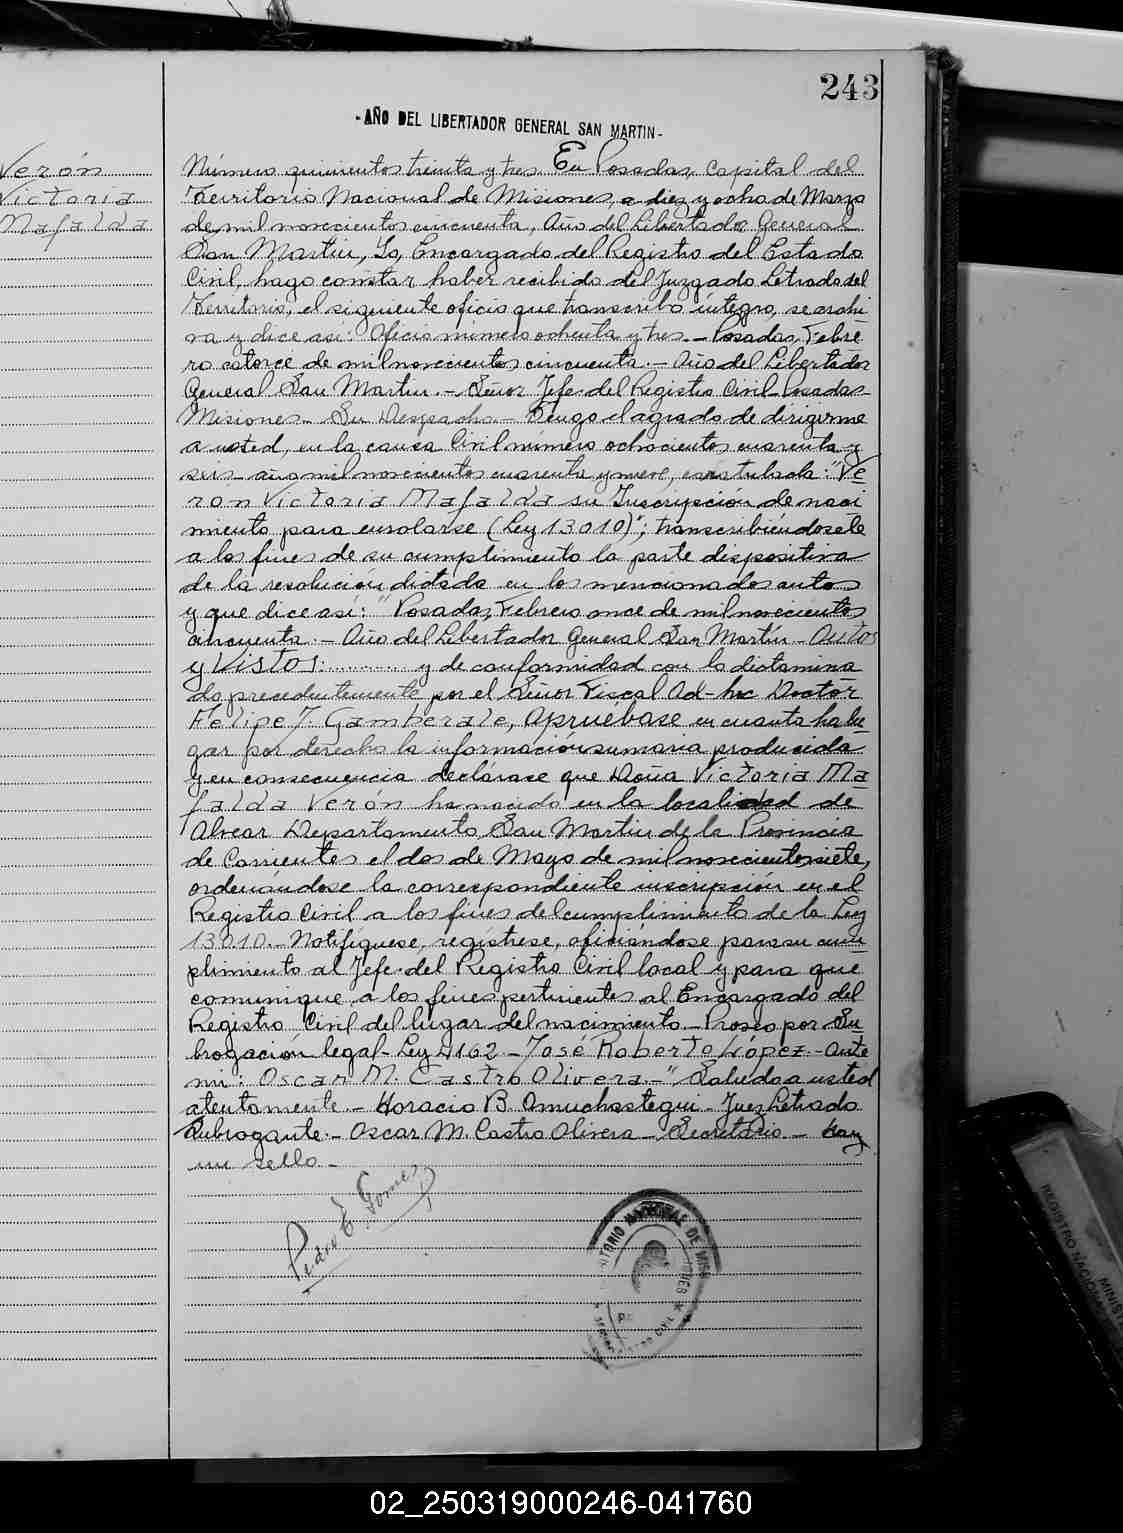 243
- AÑO DEL LIBERTADOR GENERAL SAN MARTIN -
Verón
Victoria
Mafalda
Número quinientos treinta y tres. En Posadas, Capital del
Territorio Nacional de Misiones, a diez y ocho de Marzo
de mil novecientos cincuenta, Año del Libertador General
San Martin, Yo, Encargado del Registro del Estado
Civil, hago constar haber recibido del Juzgado Letrado del
Territorio, el siguiente oficio que transcribo íntegro, se archi
va y dice así: Oficio número ochenta y tres. - Posadas, Febre
ro catorce de mil novecientos cincuenta. - Año del Libertador
General San Martin. - Señor Jefe del Registro Civil - Posadas -
Misiones - Su Despacho. - Tengo el agrado de dirigirme
a usted, en la causa Civil número ochocientos cuarenta y
seis - año mil novecientos cuarenta y nueve, caratulada: "Ve
rón Victoria Mafalda su Inscripción de naci
miento para enrolarse (Ley 13010)"; transcribiéndosele
a los fines de su cumplimiento la parte dispositiva
de la resolución dictada en los mencionados autos
y que dice así: "Posadas, Febrero once de mil novecientos
cincuenta. - Año del Libertador General San Martín - Autos
y Vistos: ............ y de conformidad con lo dictamina
do precedentemente por el Señor Fiscal Ad-hoc Doctor
Felipe J. Gamberale, apruébase en cuanto ha lu
gar por derecho la información sumaria producida
y en consecuencia declárase que Doña Victoria Ma
falda Verón ha nacido en la localidad de
Alvear Departamento San Martin de la Provincia
de Corrientes el dos de Mayo de mil novecientos siete,
ordenándose la correspondiente inscripción en el
Registro Civil a los fines del cumplimiento de la Ley
13.010. - Notifíquese, regístrese, oficiándose para su cum
plimiento al Jefe del Registro Civil local y para que
comunique a los fines pertinentes al Encargado del
Registro Civil del lugar del nacimiento. - Proveo por Su
brogación legal - Ley 4162. - José Roberto López. - Ante
mi: Oscar M. Castro Olivera. - " Saludo a usted
atentamente. - Horacio B. Amuchastegui - Juez Letrado
Subrogante. - Oscar M. Castro Olivera - Secretario - Hay
un sello. -
Pedro E. Gomez
REGISTRO NACIONAL
MINIST
02_250319000246-041760